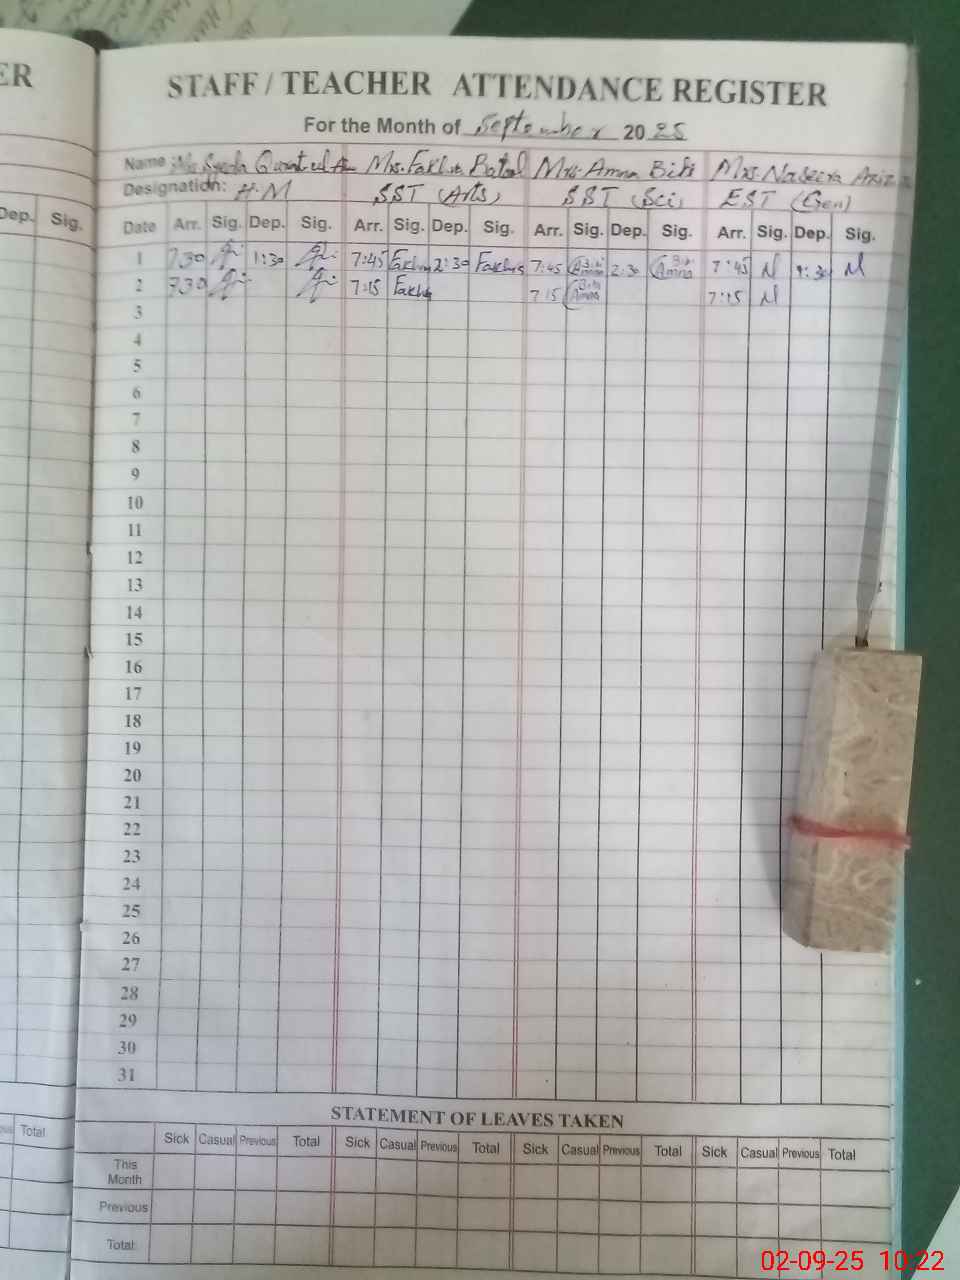 ER
STAFF / TEACHER ATTENDANCE REGISTER
For the Month of September 20 25
Name Mrs. Mrs. Amna Mrs.
Designation: H.M SST (Arts) SST (Sci) EST (Gen)
Dep. Sig.
Date Arr. Sig. Dep. Sig. Arr. Sig. Dep. Sig. Arr. Sig. Dep. Sig. Arr. Sig. Dep. Sig.
1 7:30 1:30 7:45 2:30 7:45 Amna 2:30 Amna 7:45 N N
2 7:30 7:15 7:15 Amna 7:15 N
3
4
5
6
7
8
9
10
11
12
13
14
15
16
17
18
19
20
21
22
23
24
25
26
27
28
29
30
31
STATEMENT OF LEAVES TAKEN
Total
Sick Casual Previous Total Sick Casual Previous Total Sick Casual Previous Total Sick Casual Previous Total
This Month
Previous
Total:
02-09-25 10:22